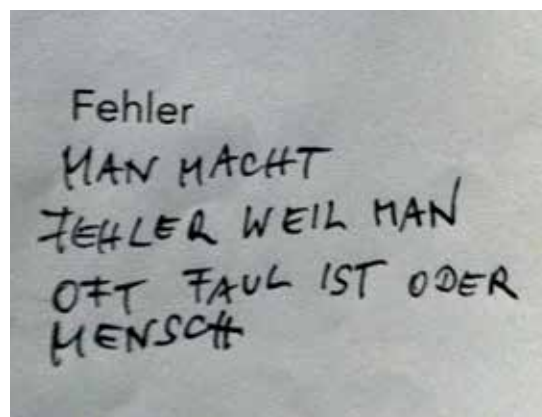 Fehler
MAN MACHT
FEHLER WEIL MAN
OFT FAUL IST ODER
MENSCH